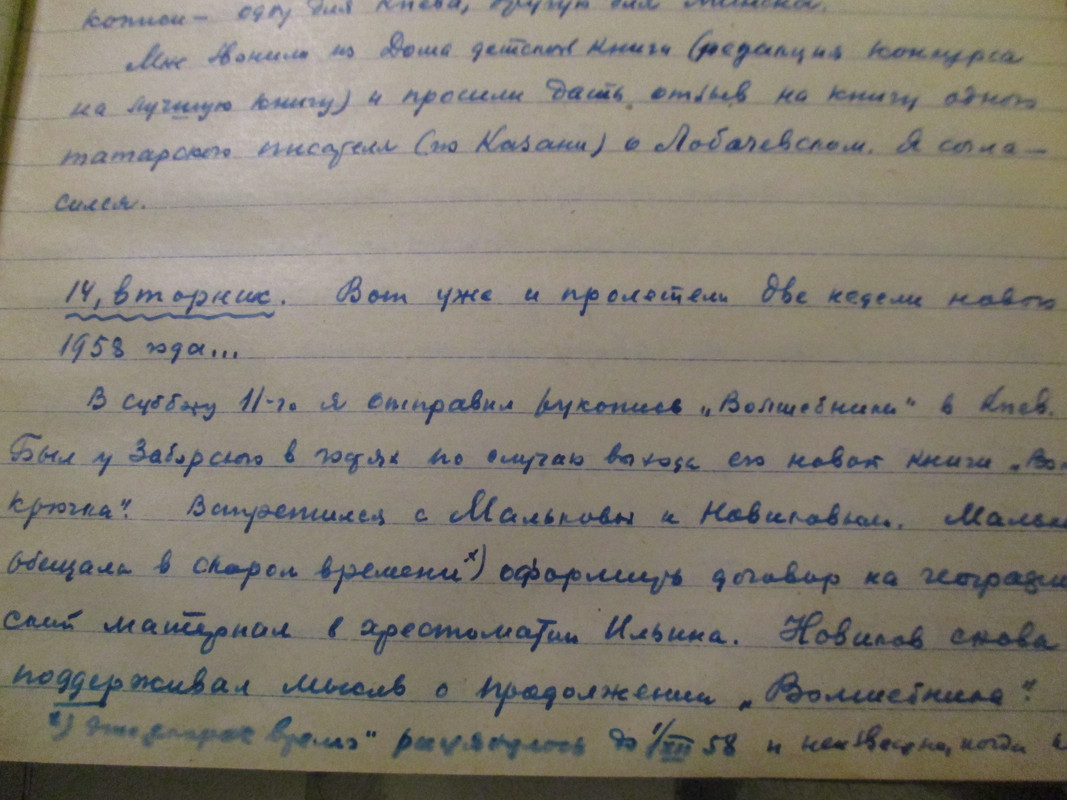 копии – одну для Киева, другую для Минска.
Мне звонили из Дома детской книги (редакция конкурса
на лучшую книгу) и просили дать отзыв на книгу одного
татарского писателя (из Казани) о Лобачевском. Я согла–
сился.
14, вторник. Вот уже и пролетели две недели нового
1958 года...
В субботу 11-го я отправил рукопись „Волшебника" в Киев.
Был у Заборского в гостях по случаю выхода его новой книги „Во
крючка". Встретился с Мальковы и Новиковым. Мальк
обещала в скором времени х) оформить договор на географиче
ский материал в хрестоматии Ильина. Новиков снова
поддерживал мысль о продолжении „Волшебника".
х) Это „скорое время" растянулось до 1/XII 58 и неизвестно, когда